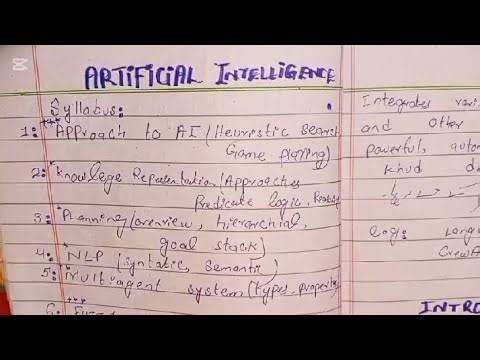 ARTIFICIAL INTELLIGENCE
Syllabus:
1: Approach to AI (Heuristic Search
Game playing)
2: Knowlege Representation (Approaches
Predicate logic,
3: Planning (overview, hierarchial,
goal stack)
4: NLP (syntatic, Semantic)
5: Multiagent system (types, properties)
6:
Integrates
and Other
powerfuls
Khud
INTRO